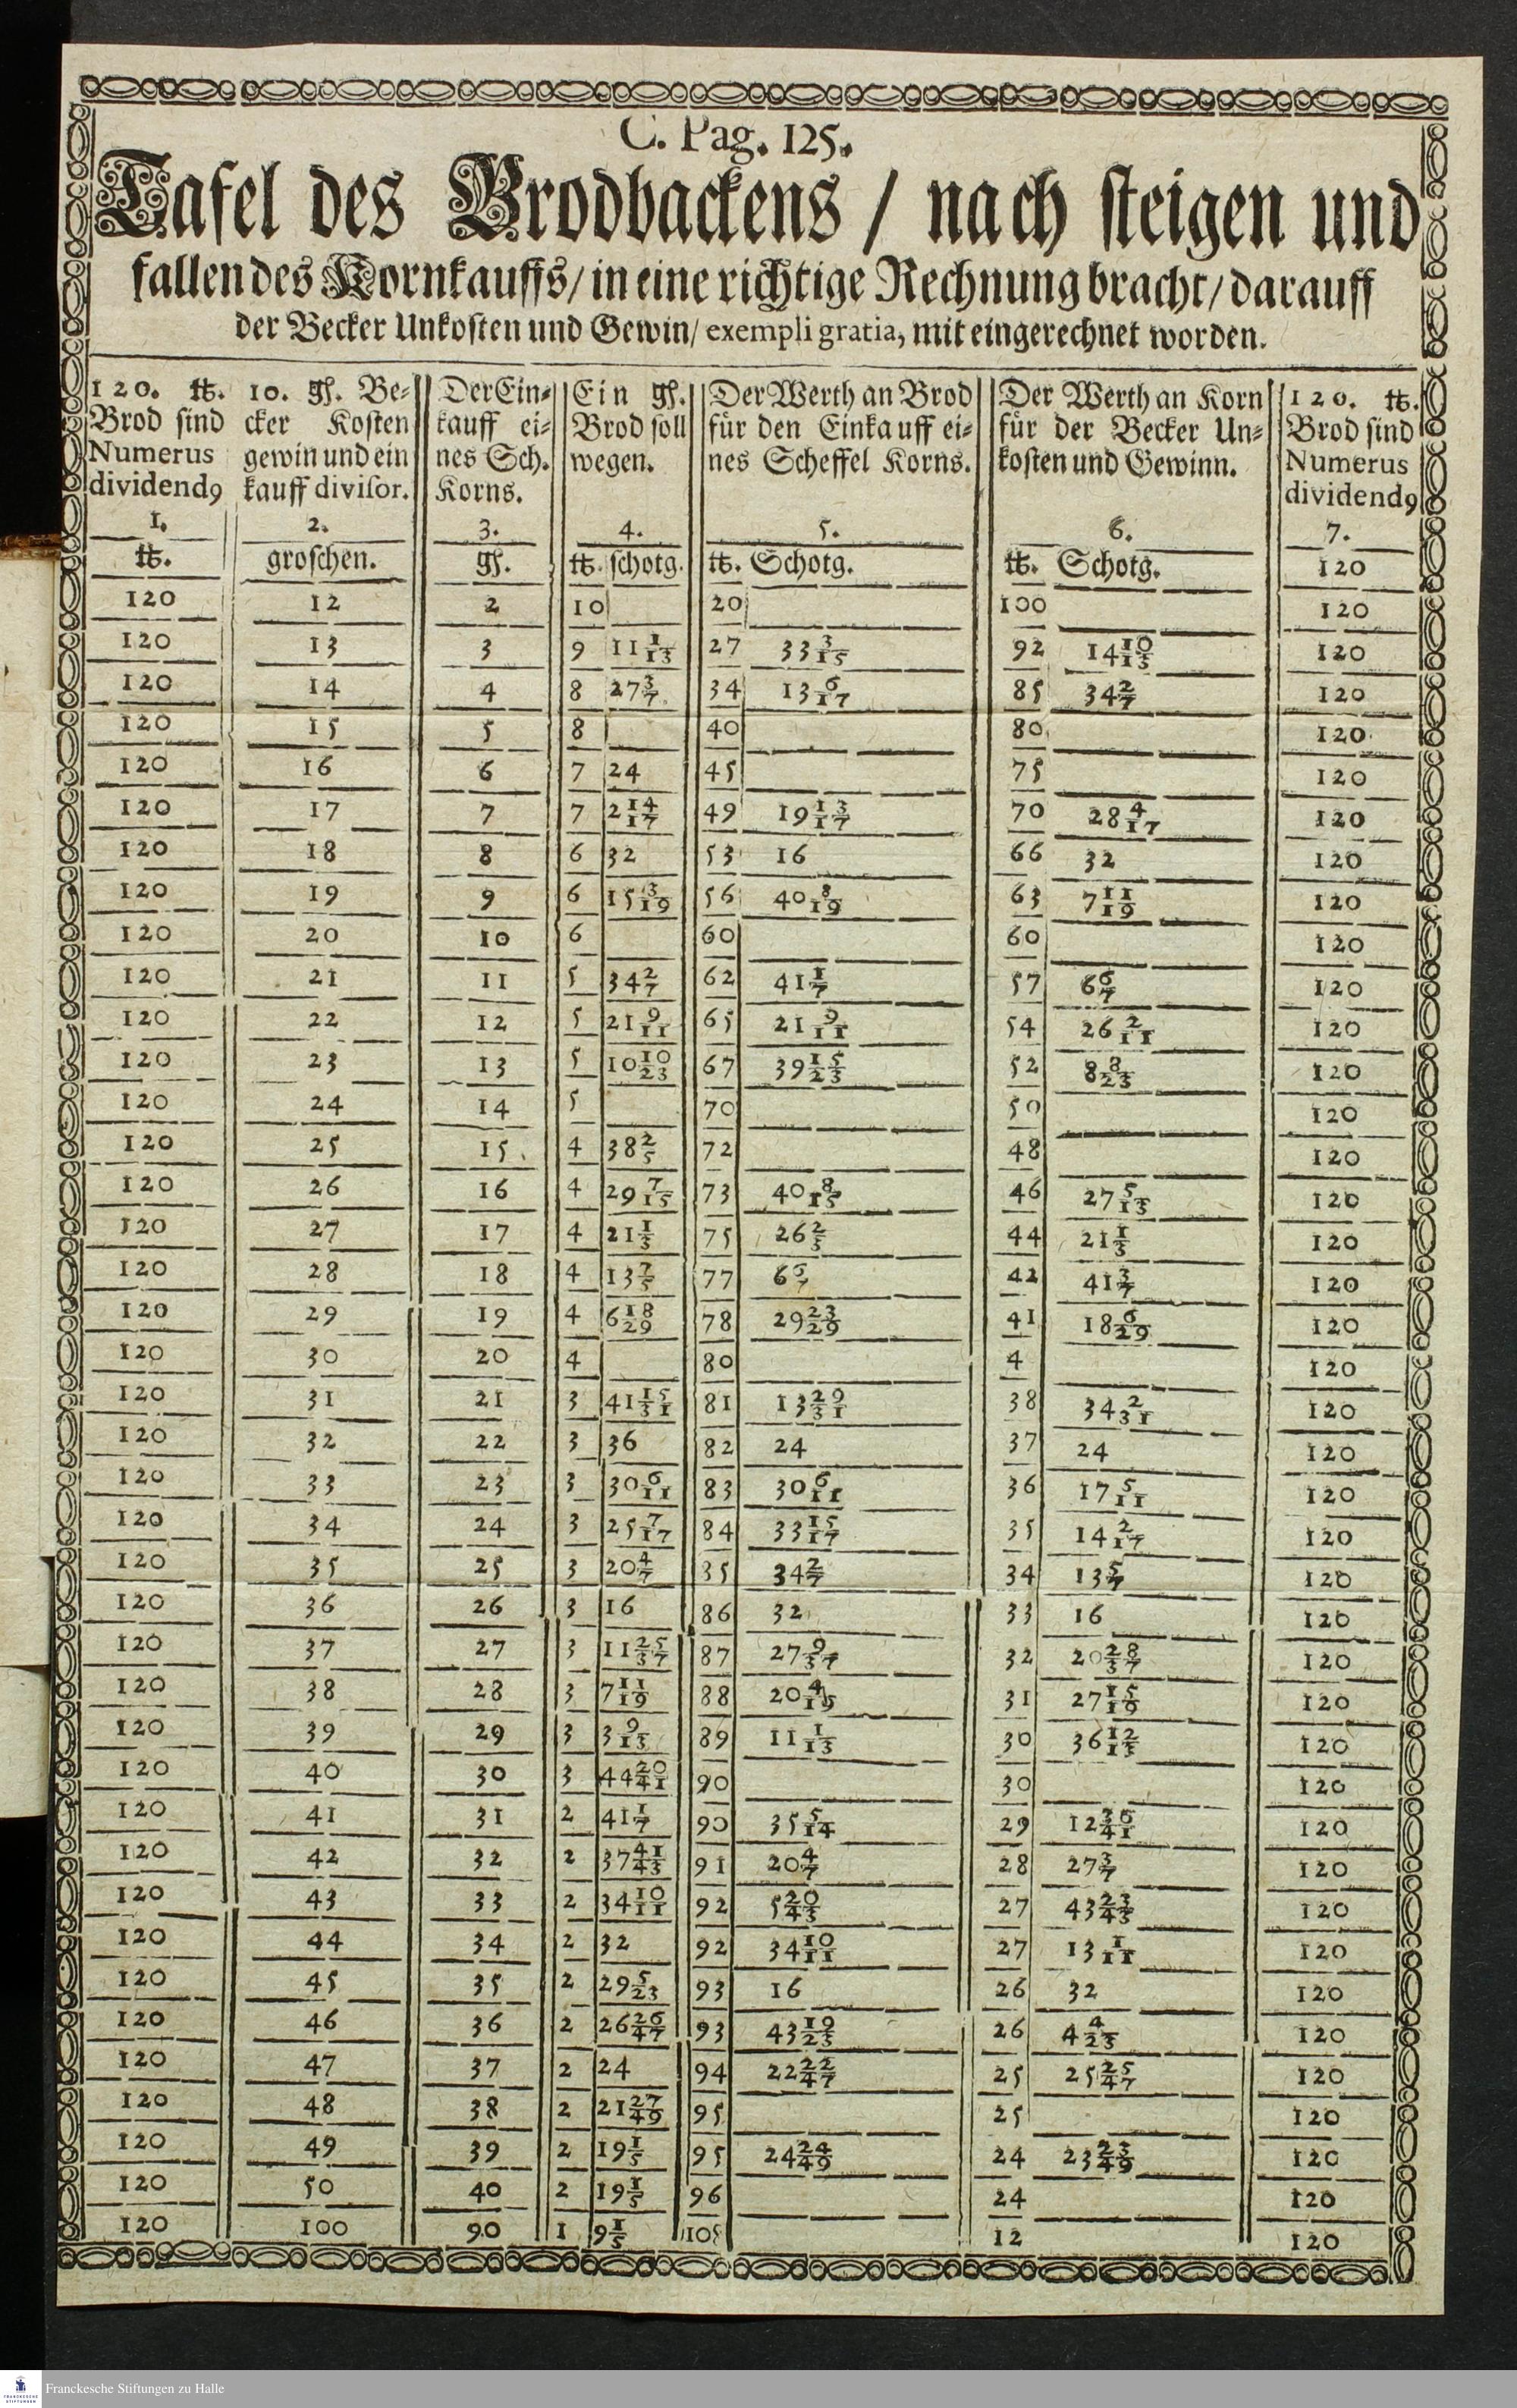 C. Pag. 125.
Tafel des Brodbackens / nach steigen und
fallen des Kornkauffs / in eine richtige Rechnung bracht / darauff
der Becker Unkosten und Gewin / exempli gratia, mit eingerechnet worden.
120. ℔. Brod sind Numerus dividend9 | 10. gſ. Be- cker Kosten gewin und ein kauff divisor. | Der Ein- kauff ei- nes Sch. Korns. | Ein gſ. Brod soll wegen. | Der Werth an Brod für den Einkauff ei- nes Scheffel Korns. | Der Werth an Korn für der Becker Un- kosten und Gewinn. | 120. ℔. Brod sind Numerus dividend9
1. 2. 3. 4. 5. 6. 7.
℔. groschen. gſ. ℔. schotg. ℔. Schotg. ℔. Schotg. 120
120 12 2 10 20 100 120
120 13 3 9 11 1/13 27 33 3/15 92 14 10/13 120
120 14 4 8 27 3/7 34 13 6/17 85 34 2/7 120
120 15 5 8 40 80 120
120 16 6 7 24 45 75 120
120 17 7 7 2 14/17 49 19 13/17 70 28 4/17 120
120 18 8 6 32 53 16 66 32 120
120 19 9 6 15 3/19 56 40 8/19 63 7 11/19 120
120 20 10 6 60 60 120
120 21 11 5 34 2/7 62 41 1/7 57 6 6/7 120
120 22 12 5 21 9/11 65 21 9/11 54 26 2/11 120
120 23 13 5 10 10/23 67 39 15/23 52 8 8/23 120
120 24 14 5 70 50 120
120 25 15 4 38 2/5 72 48 120
120 26 16 4 29 7/15 73 40 8/15 46 27 5/13 120
120 27 17 4 21 1/3 75 26 2/3 44 21 1/3 120
120 28 18 4 13 7/5 77 6 6/7 42 41 3/7 120
120 29 19 4 6 18/29 78 29 23/29 41 18 6/29 120
120 30 20 4 80 4 120
120 31 21 3 41 15/31 81 13 29/31 38 34 2/31 120
120 32 22 3 36 82 24 37 24 120
120 33 23 3 30 6/11 83 30 6/11 36 17 5/11 120
120 34 24 3 25 7/17 84 33 15/17 35 14 2/17 120
120 35 25 3 20 4/7 35 34 2/7 34 13 5/7 120
120 36 26 3 16 86 32 33 16 120
120 37 27 3 11 25/37 87 27 9/37 32 20 28/37 120
120 38 28 3 7 11/19 88 20 4/19 31 27 15/19 120
120 39 29 3 3 9/13 89 11 1/13 30 36 12/13 120
120 40 30 3 44 20/41 90 30 120
120 41 31 2 41 1/7 90 35 5/14 29 12 36/41 120
120 42 32 2 37 41/43 91 20 4/7 28 27 3/7 120
120 43 33 2 34 10/11 92 5 20/43 27 43 23/43 120
120 44 34 2 32 92 34 10/11 27 13 1/11 120
120 45 35 2 29 5/23 93 16 26 32 120
120 46 36 2 26 26/47 93 43 19/23 26 4 4/23 120
120 47 37 2 24 94 22 22/47 25 25 25/47 120
120 48 38 2 21 27/49 95 25 120
120 49 39 2 19 1/5 95 24 24/49 24 23 23/49 120
120 50 40 2 19 1/5 96 24 120
120 100 90 1 9 1/5 108 12 120
Franckesche Stiftungen zu Halle
FRANCKESCHE
STIFTUNGEN